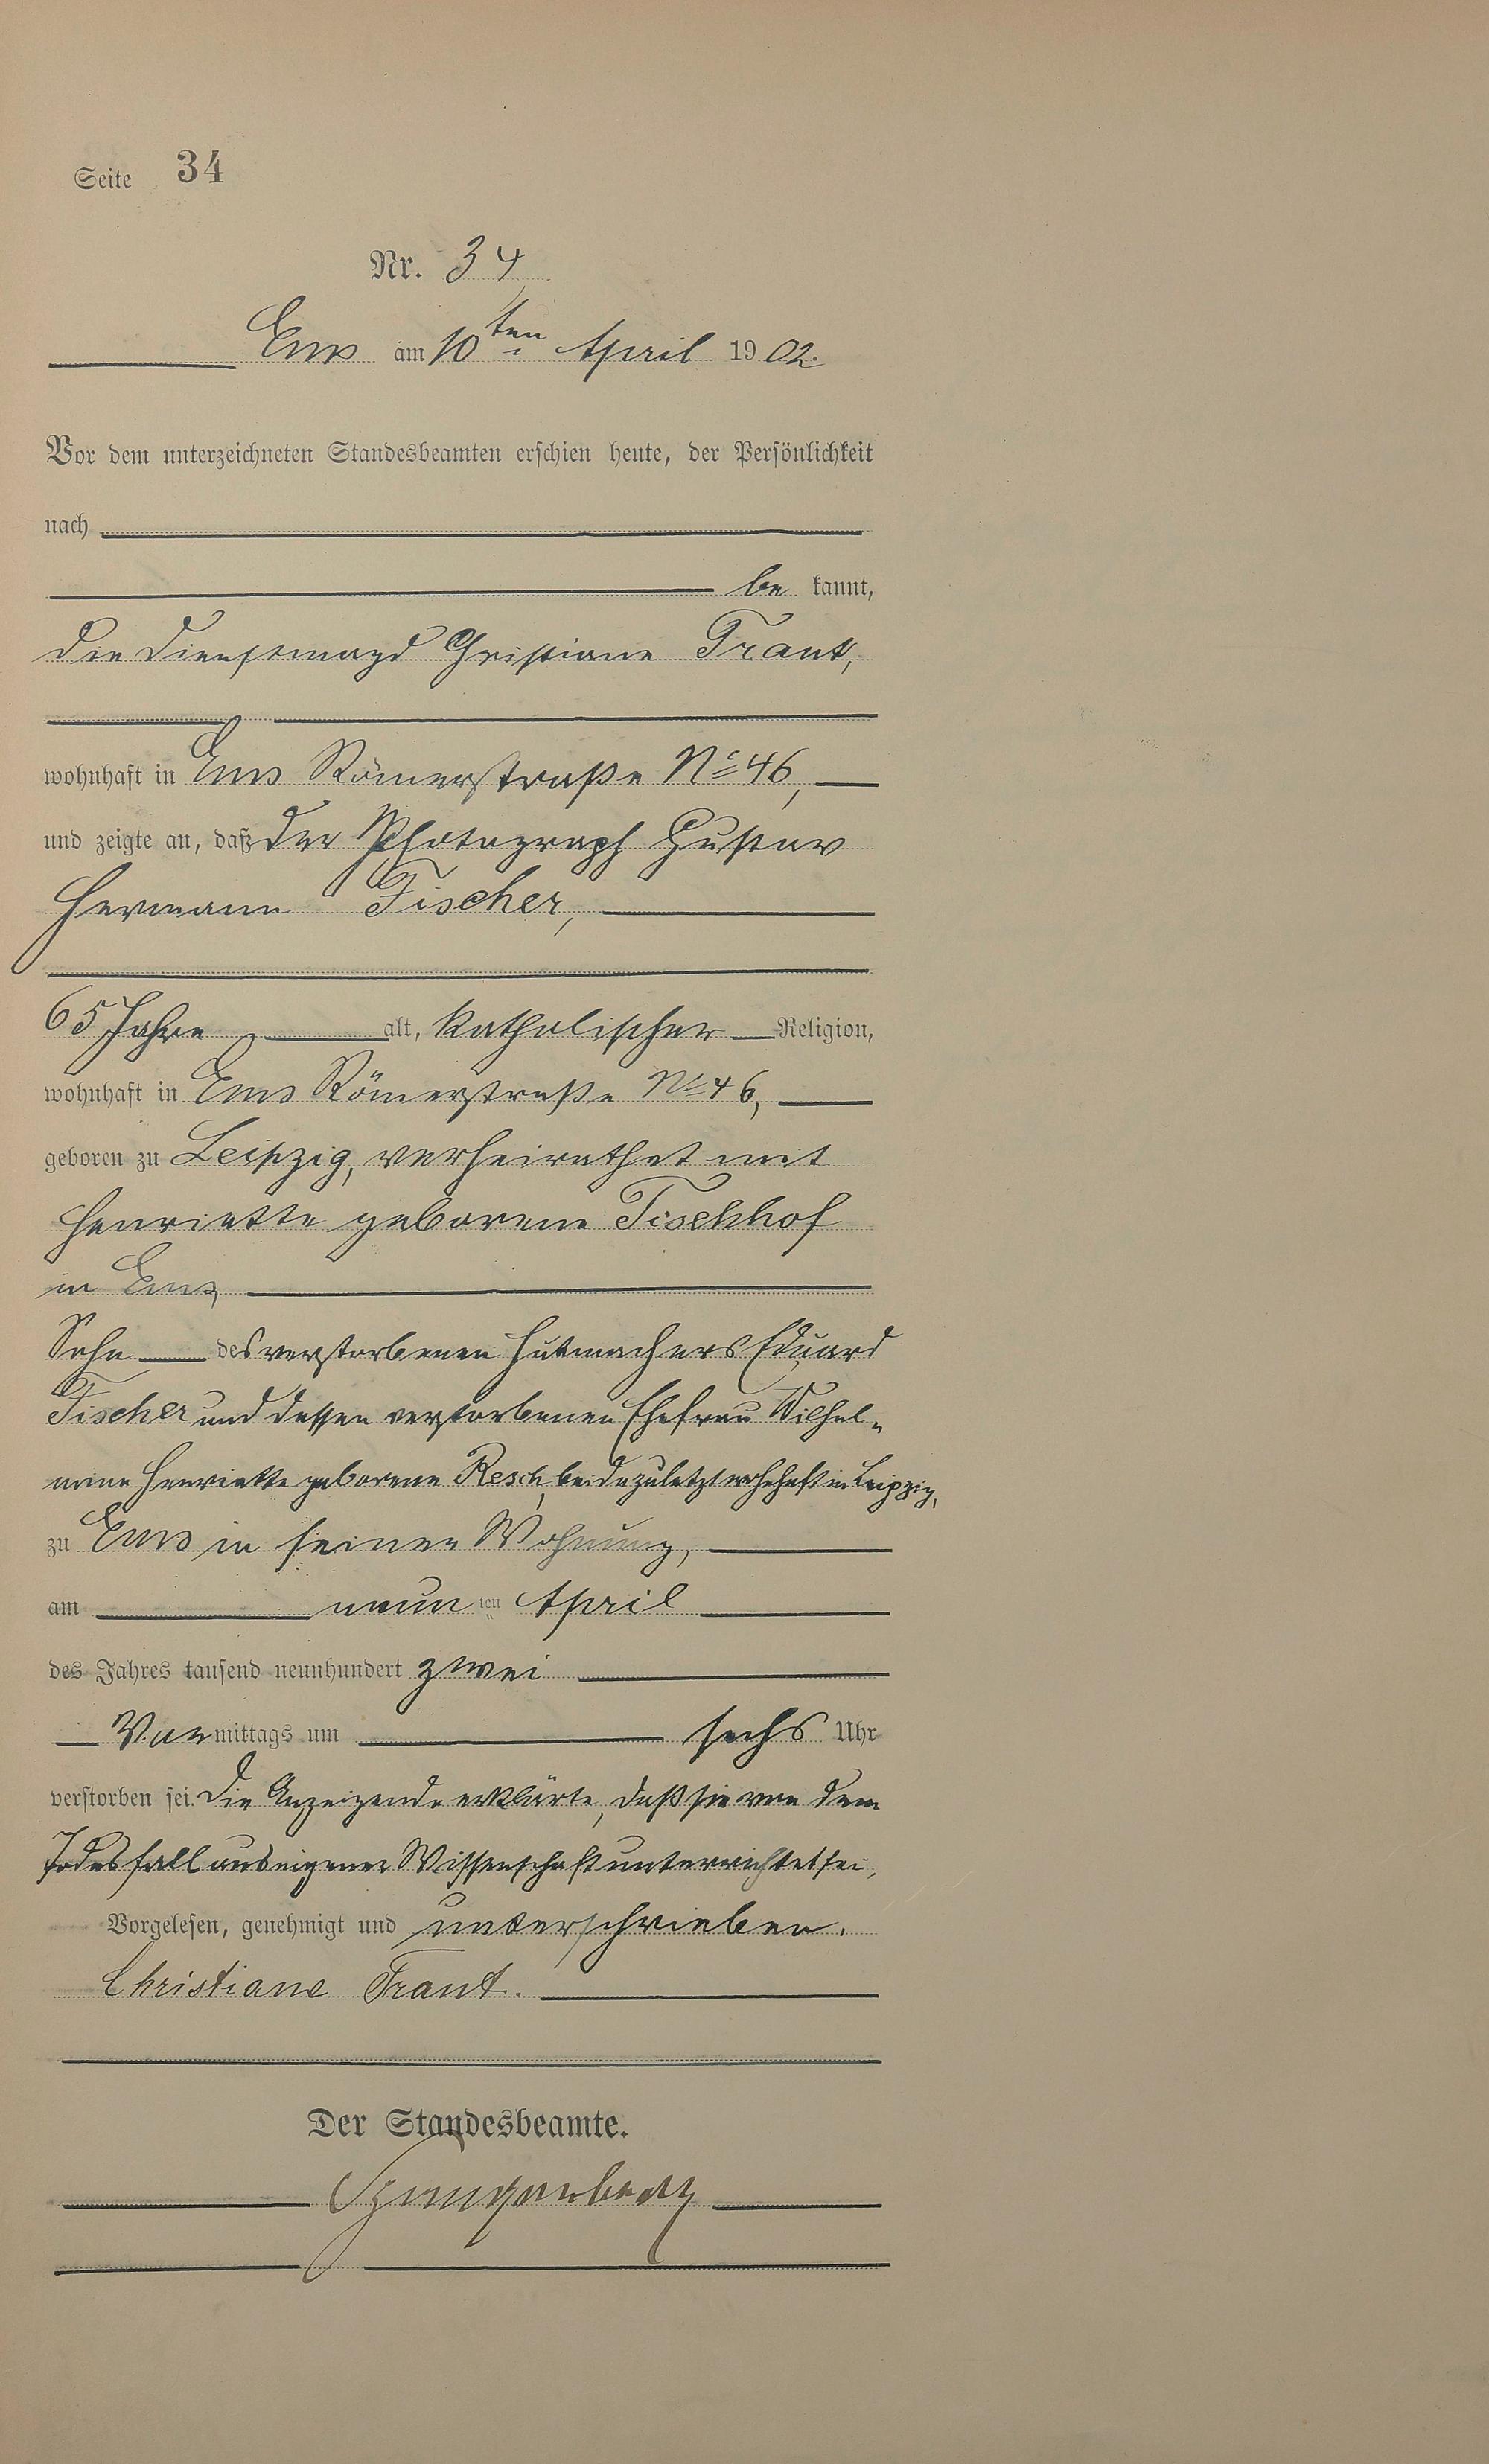 Seite 34
Nr. 34
Ems am 10ten April 1902.
Vor dem unterzeichneten Standesbeamten erschien heute, der Persönlichkeit
nach
be kannt,
die Dienstmagd Christiane Trant,
wohnhaft in Ems Römerstraße No 46,
und zeigte an, daß der Photograph Gustav
Hermann Fischer,
65 Jahre alt, katholischer Religion,
wohnhaft in Ems Römerstraße No 46,
geboren zu Leipzig, verheirathet mit
Henriette geborene Tischhof
in Ems,
Sohn des verstorbenen Hutmachers Eduard
Fischer und dessen verstorbenen Ehefrau Wilhel-
mine Henriette geborene Resch, beide zuletzt wohnhaft in Leipzig,
zu Ems in seiner Wohnung,
am neun ten April
des Jahres tausend neunhundert zwei
Vor mittags um sechs Uhr
verstorben sei. Die Anzeigende erklärte, daß sie von dem
Todesfall aus eigener Wissenschaft unterrichtet sei,
Vorgelesen, genehmigt und unterschrieben.
Christiane Trant.
Der Standesbeamte.